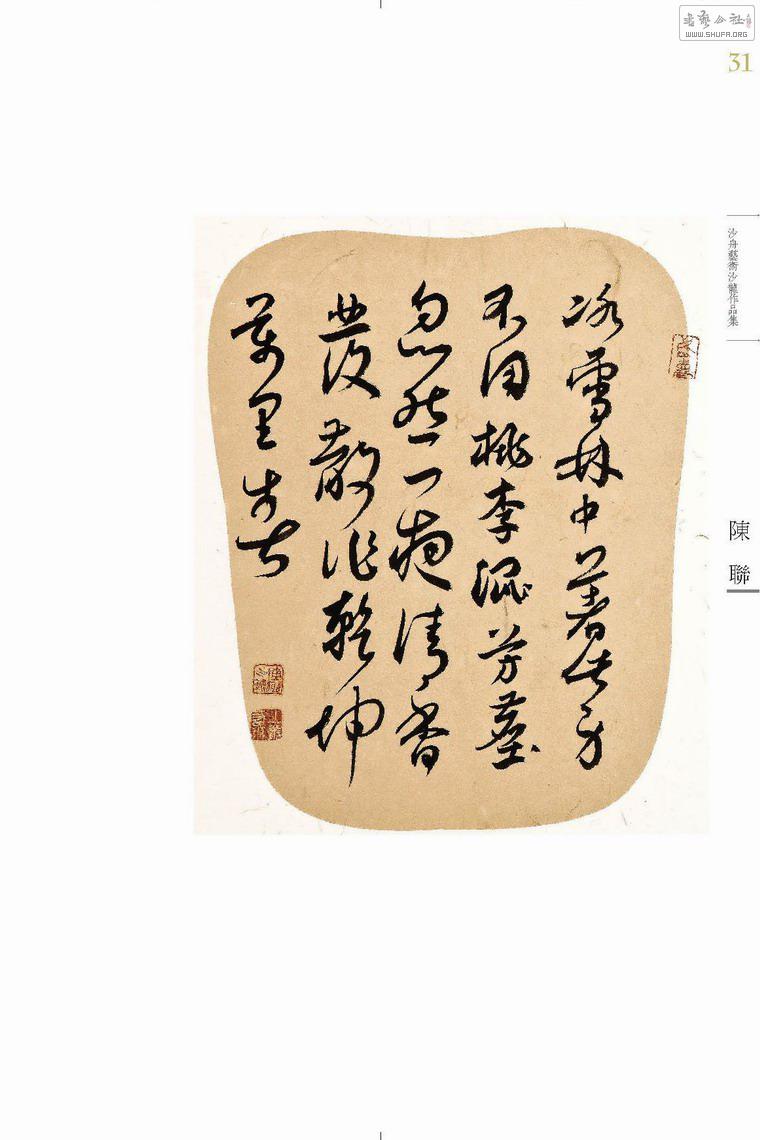 冰雪林中著此身
不同桃李混芳塵
忽然一夜清香
發散作乾坤
萬里春
書藝公社
WWW.SHUFA.ORG
31
沙舟藝術沙龍作品集
陳聯